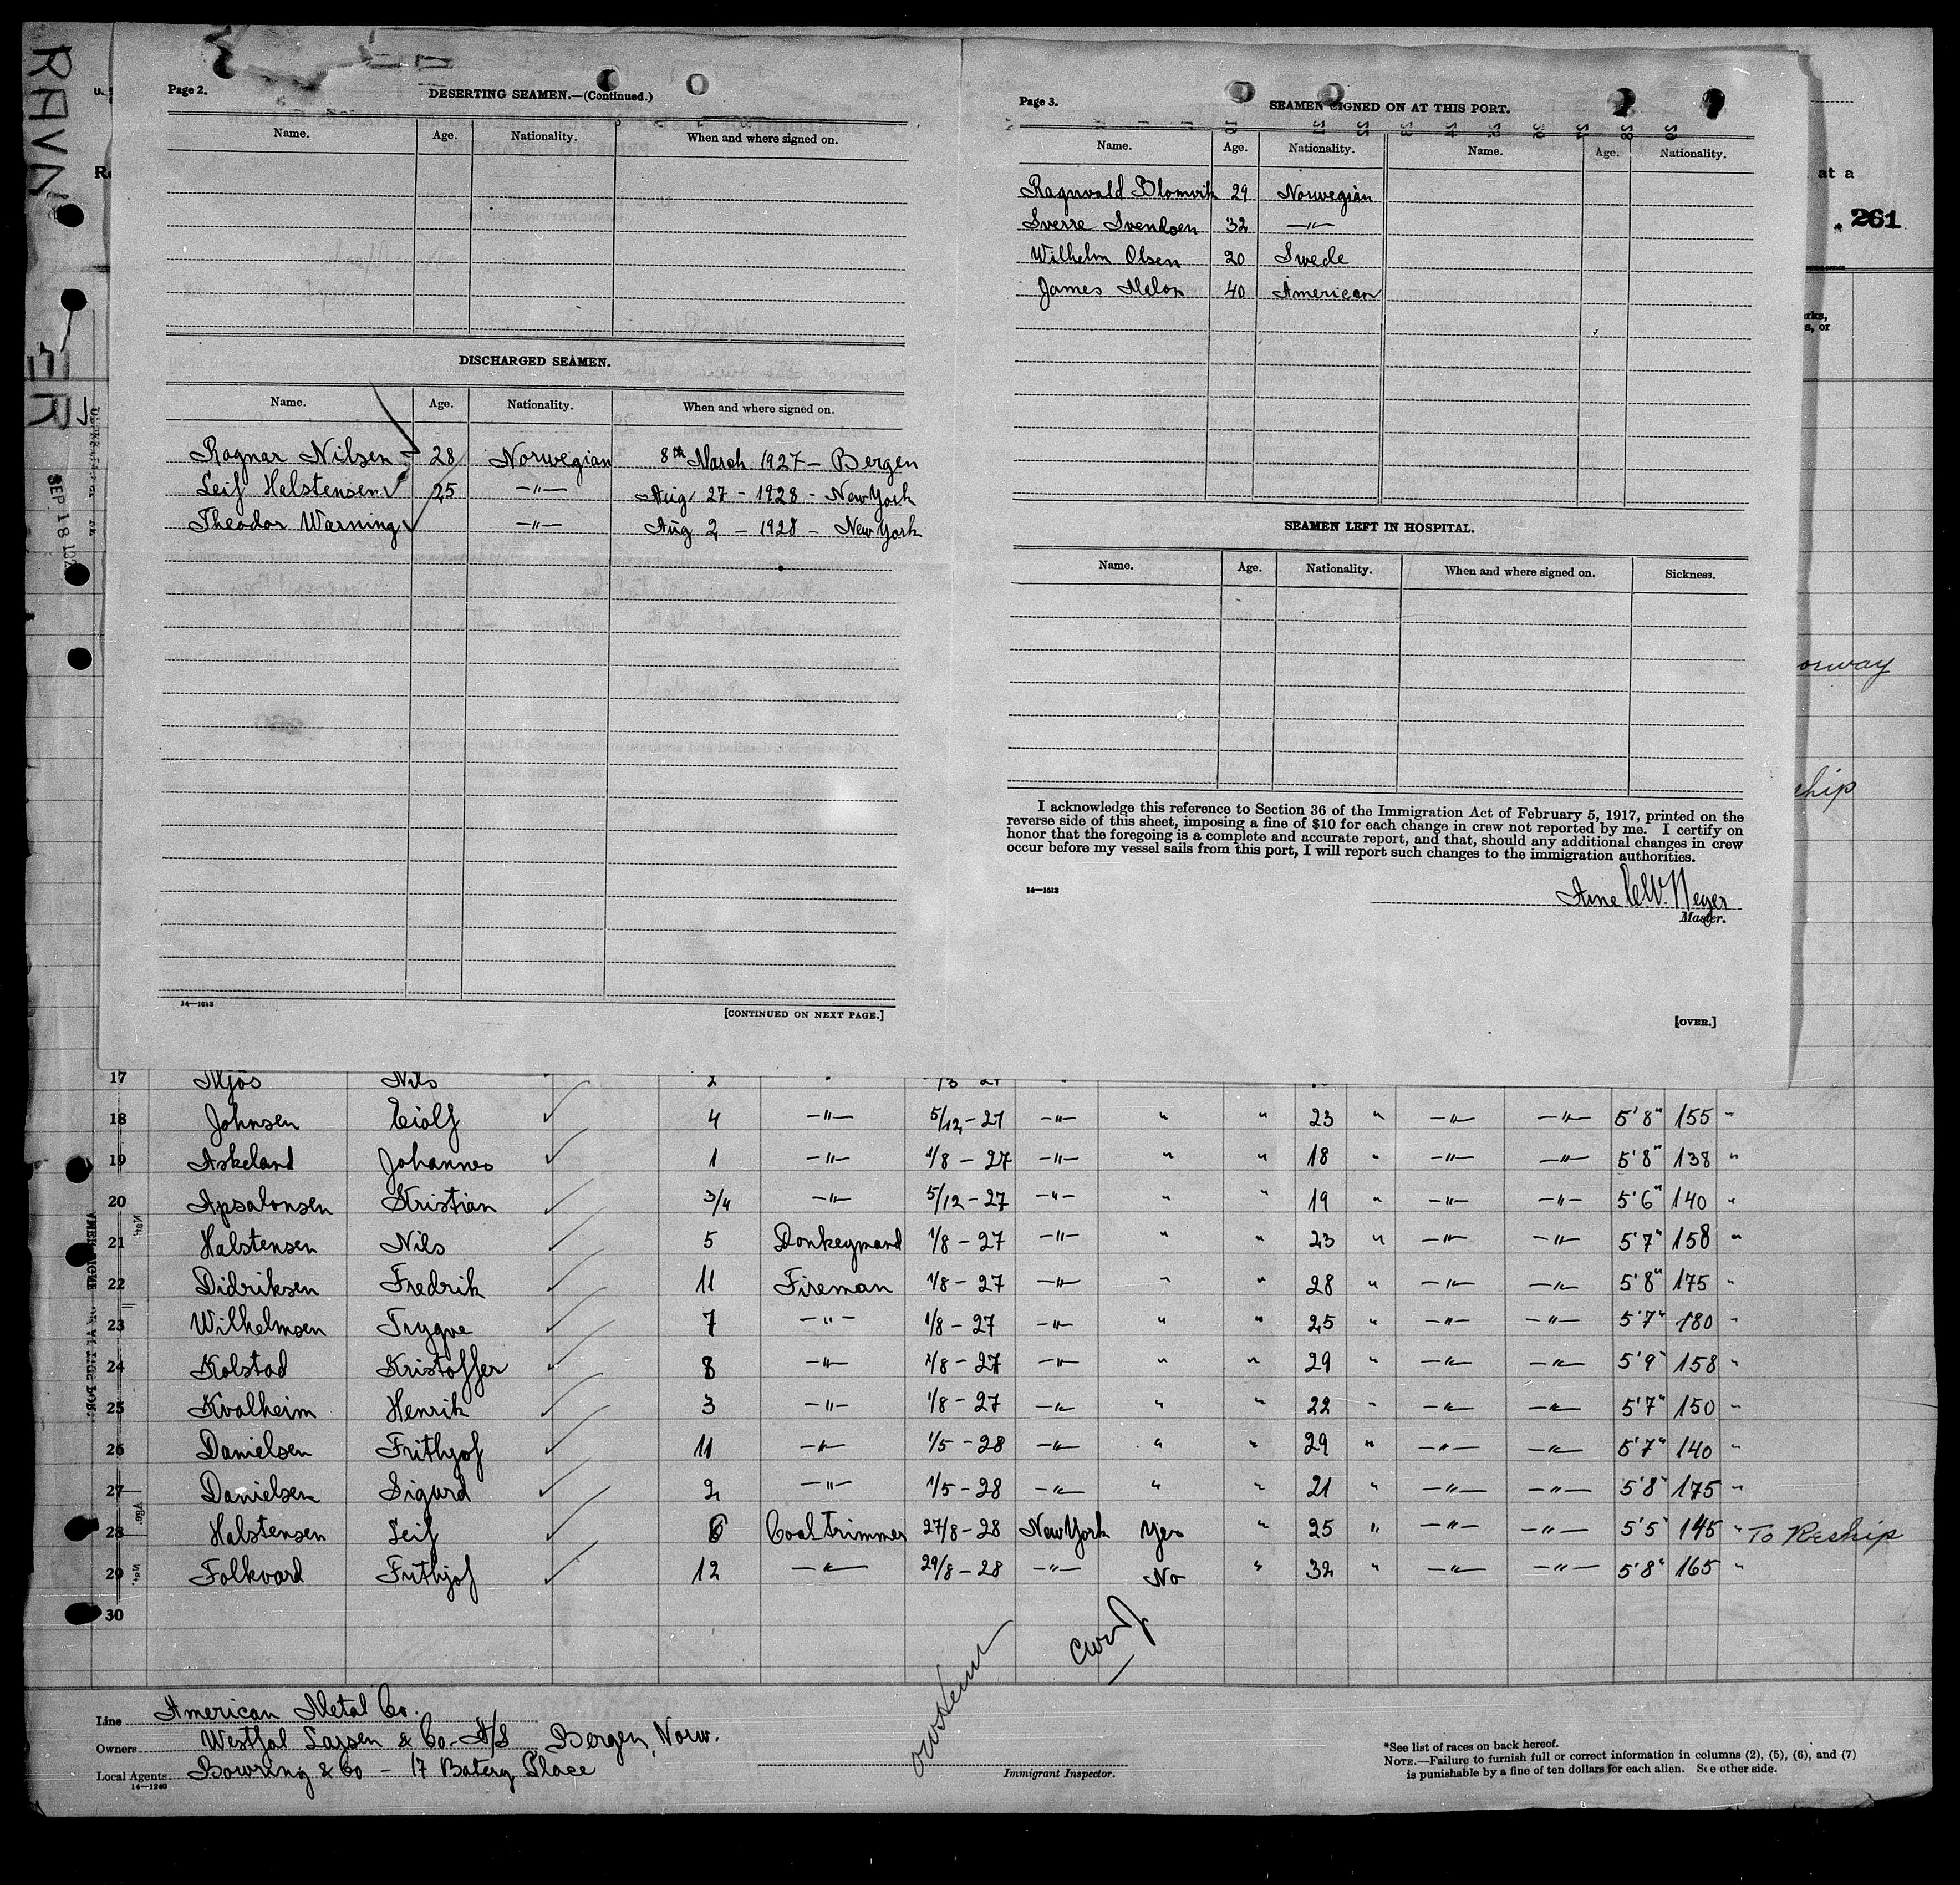 RAVN
ER
SEP 18 192
Page 2.
DESERTING SEAMEN.—(Continued.)
Name. Age. Nationality. When and where signed on.
DISCHARGED SEAMEN.
Name. Age. Nationality. When and where signed on.
Ragnar Nilsen 28 Norwegian 8th March 1927 – Bergen
Leif Halstensen 25 —"— Aug 27 – 1928 – New York
Theodor Warning —"— Aug 2 – 1928 – New York
14—1613
[CONTINUED ON NEXT PAGE.]
Page 3.
SEAMEN SIGNED ON AT THIS PORT.
Name. Age. Nationality. Name. Age. Nationality.
Ragnvald Blomvik 29 Norwegian
Sverre Svendsen 32 —"—
Wilhelm Olsen 20 Swede
James Melon 40 American
SEAMEN LEFT IN HOSPITAL.
Name. Age. Nationality. When and where signed on. Sickness.
I acknowledge this reference to Section 36 of the Immigration Act of February 5, 1917, printed on the
reverse side of this sheet, imposing a fine of $10 for each change in crew not reported by me. I certify on
honor that the foregoing is a complete and accurate report, and that, should any additional changes in crew
occur before my vessel sails from this port, I will report such changes to the immigration authorities.
14—1613
Arne
Master.
[OVER.]
at a
261
rks,
s, or
orway
ship
17 Mjös Nils 2
18 Johnsen Eiolf 4 —"— 5/12 – 27 —"— " " 23 " —"— —"— 5'8" 155 "
19 Askeland Johannes 1 —"— 1/8 – 27 —"— " " 18 " —"— —"— 5'8" 138 "
20 Apsalonsen Kristian 3/4 —"— 5/12 – 27 —"— " " 19 " —"— —"— 5'6" 140 "
21 Halstensen Nils 5 Donkeymand 1/8 – 27 —"— " " 23 " —"— —"— 5'7" 158 "
22 Didriksen Fredrik 11 Fireman 1/8 – 27 —"— " " 28 " —"— —"— 5'8" 175 "
23 Wilhelmsen Trygve 7 —"— 1/8 – 27 —"— " " 25 " —"— —"— 5'7" 180 "
24 Kolstad Kristoffer 8 —"— 1/8 – 27 —"— " " 29 " —"— —"— 5'9" 158 "
25 Kvalheim Henrik 3 —"— 1/8 – 27 —"— " " 22 " —"— —"— 5'7" 150 "
26 Danielsen Frithjof 11 —"— 1/5 – 28 —"— " " 29 " —"— —"— 5'7" 140 "
27 Danielsen Sigurd 2 —"— 1/5 – 28 —"— " " 21 " —"— —"— 5'8" 175 "
28 Halstensen Leif 6 Coal trimmer 27/8 – 28 New York Yes " 25 " —"— —"— 5'5" 145 " To Reship
29 Folkvard Frithjof 12 —"— 29/8 – 28 —"— No " 32 " —"— —"— 5'8" 165 "
30
Line American Metal Co.
Owners Westfal Larsen & Co. A/S Bergen, Norw.
Local Agents Bowring & Co – 17 Batery Place
14—1240
Immigrant Inspector.
*See list of races on back hereof.
NOTE.—Failure to furnish full or correct information in columns (2), (5), (6), and (7)
is punishable by a fine of ten dollars for each alien. See other side.